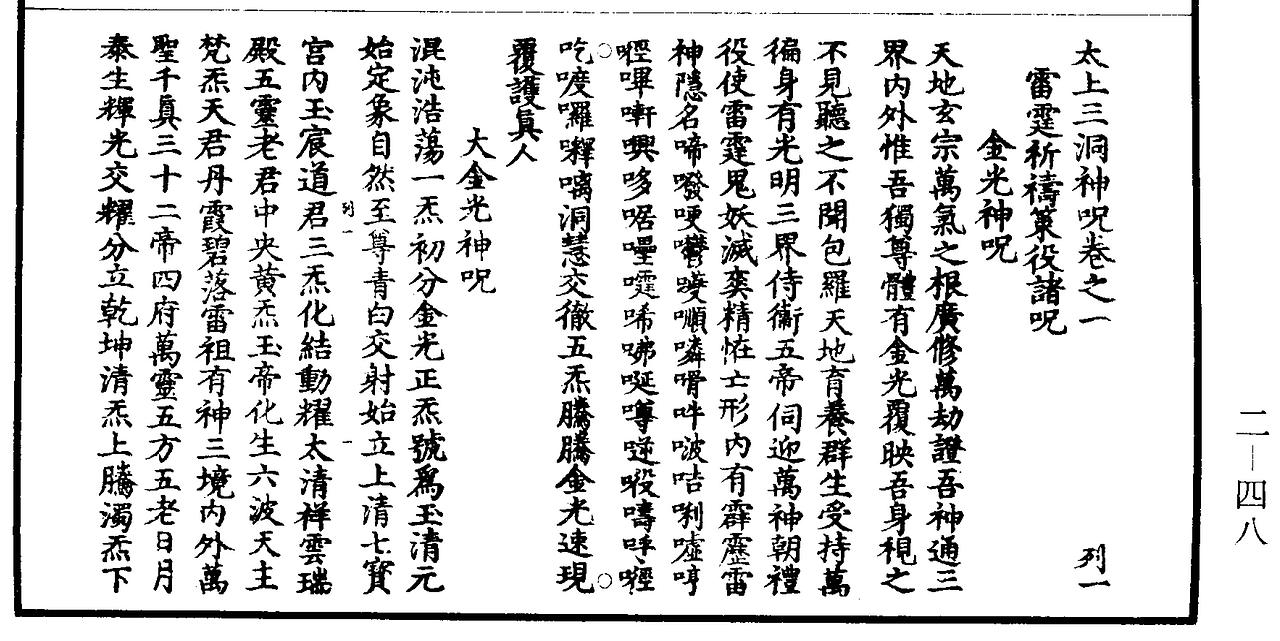 太上三洞神呪卷之一 列一
雷霆祈禱策役諸呪
金光神呪
天地玄宗萬氣之根廣修萬劫證吾神通三
界内外惟吾獨尊體有金光覆映吾身視之
不見聽之不聞包羅天地育養群生受持萬
徧身有光明三界侍衞五帝伺迎萬神朝禮
役使雷霆鬼妖滅䘮精恠亡形内有霹靂雷
神隱名啼
吃嚘囉釋璃洞慧交徹五炁騰騰金光速現
覆護眞人
大金光神呪
混沌浩蕩一炁初分金光正炁號爲玉清元
始定象自然至尊青白交射始立上清七寳
宫内玉宸道君三炁化結動耀太清祥雲瑞
殿五靈老君中央黄炁玉帝化生六波天主
梵炁天君丹霞碧落雷祖有神三境内外萬
聖千眞三十二帝四府萬靈五方五老日月
泰生輝光交耀分立乾坤清炁上騰濁炁下
列一
一
二—四八